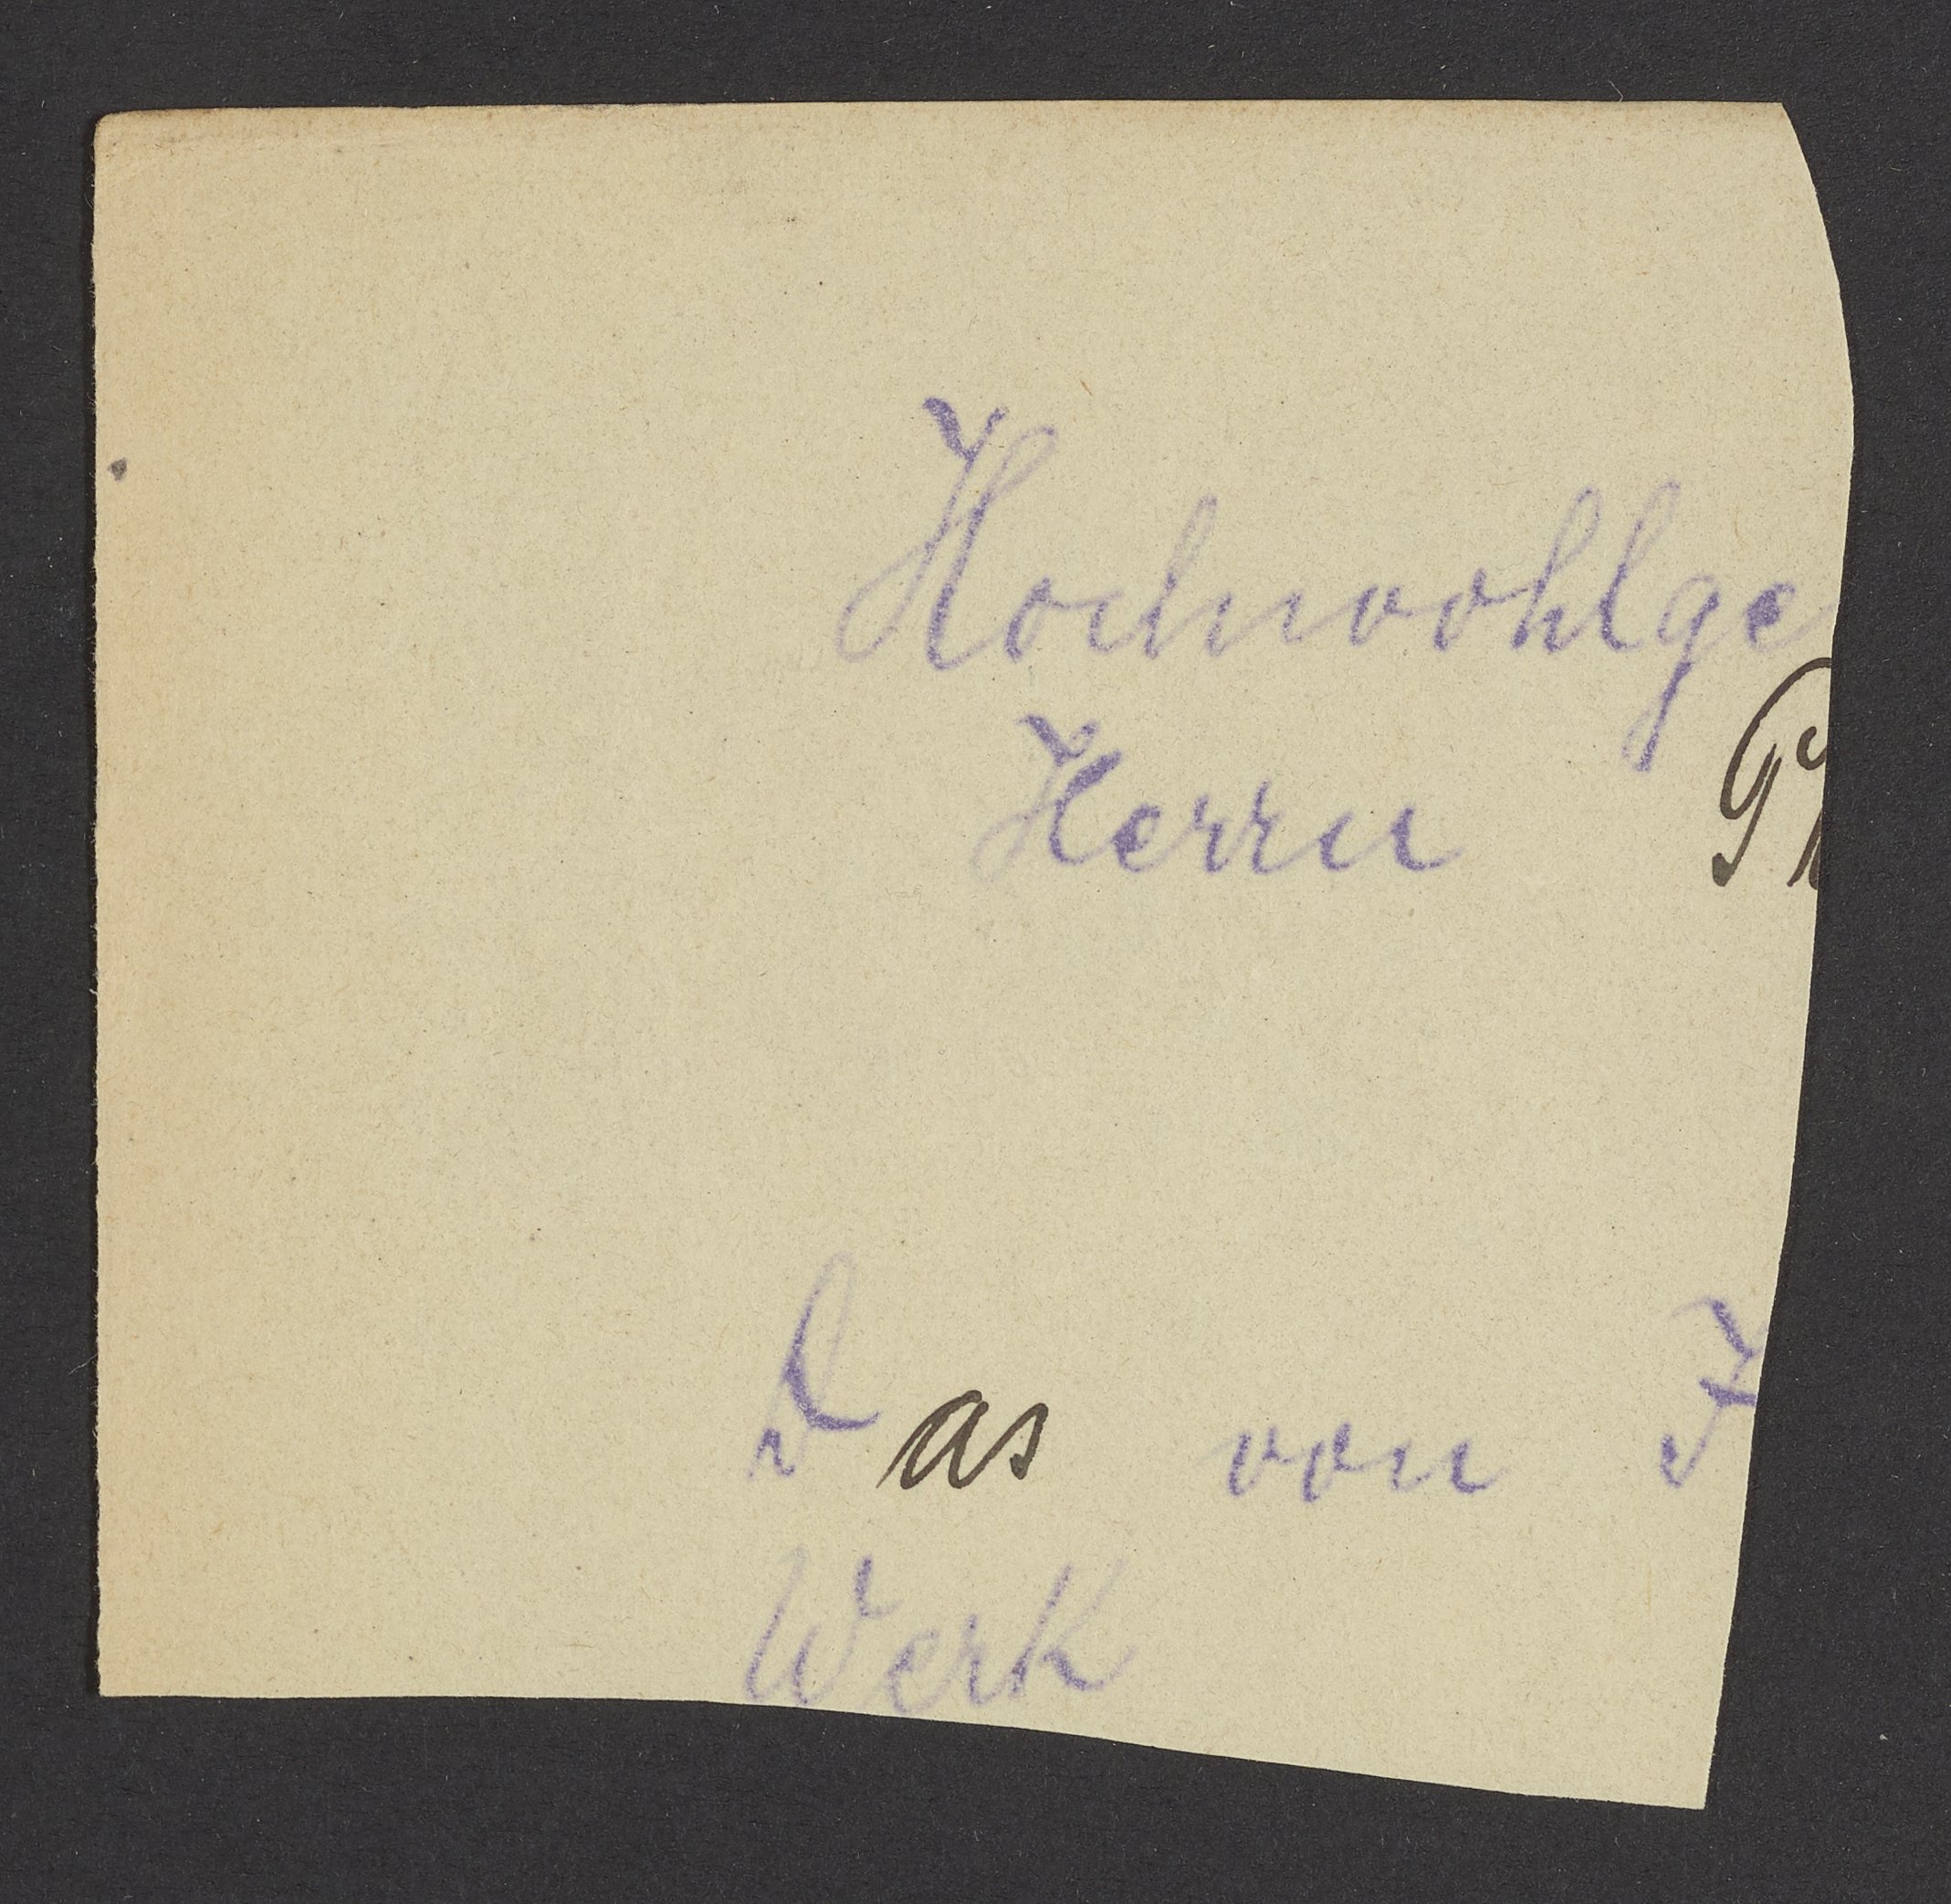 Hochwohlge
Herrn
Das von
Werk